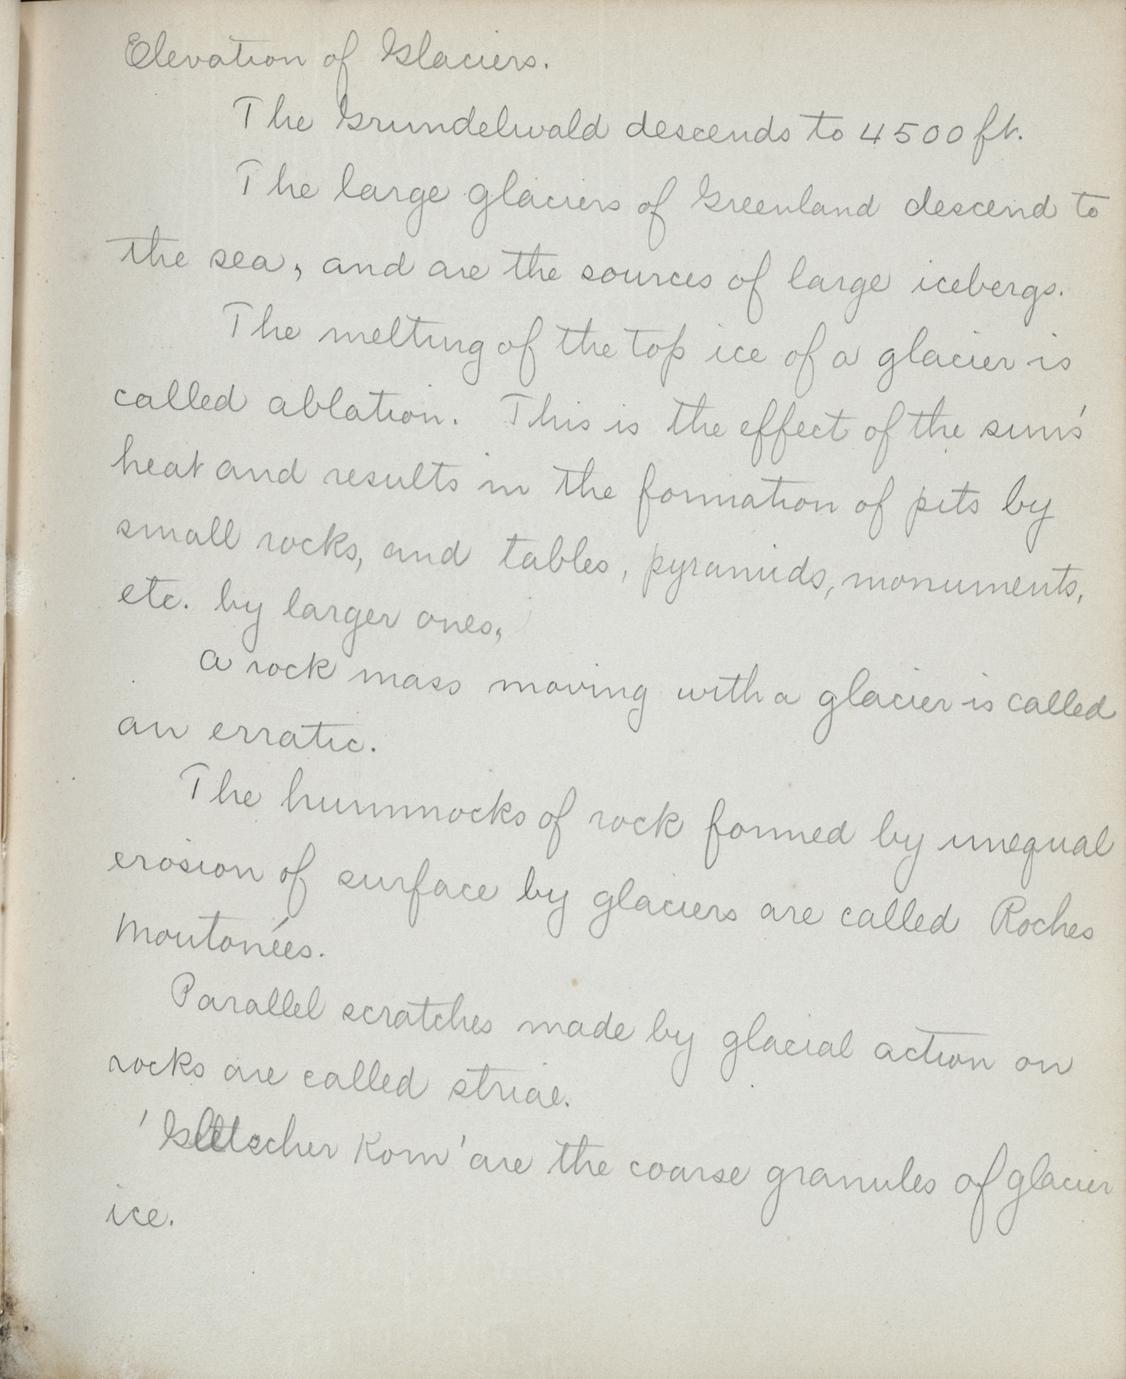 Elevation of Glaciers.
The Grundelwald descends to 4500 ft.
The large glaciers of Greenland descend to
the sea, and are the sources of large icebergs.
The melting of the top ice of a glacier is
called ablation. This is the effect of the sun's
heat and results in the formation of pits by
small rocks, and tables, pyramids, monuments,
etc. by larger ones,
A rock mass moving with a glacier is called
an erratic.
The hummocks of rock formed by unequal
erosion of surface by glaciers are called Roches
Moutonées.
Parallel scratches made by glacial action on
rocks are called striae.
'Gletscher Korn' are the coarse granules of glacier
ice.